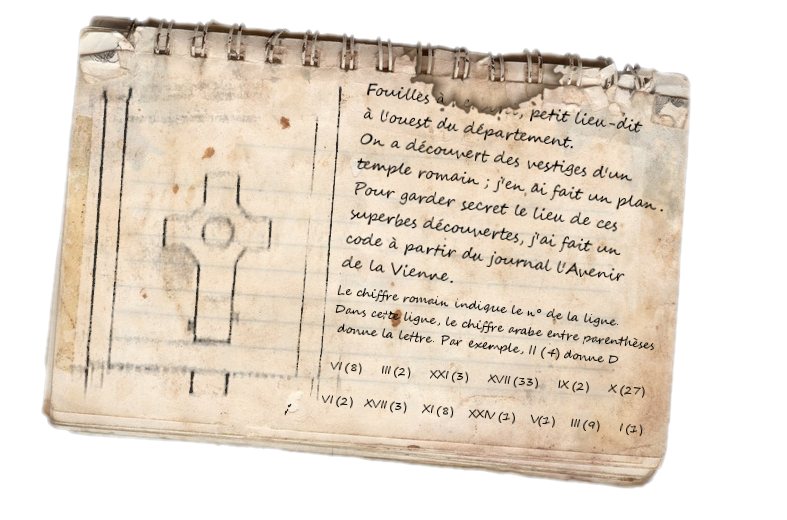 Fouilles à , petit lieu-dit
à l'ouest du département.
On a découvert des vestiges d'un
temple romain ; j'en ai fait un plan.
Pour garder secret le lieu de ces
superbes découvertes, j'ai fait un
code à partir du journal l'Avenir
de la Vienne.
Le chiffre romain indique le n° de la ligne.
Dans cette ligne, le chiffre arabe entre parenthèses
donne la lettre. Par exemple, II (4) donne D
VI (8) III (2) XXI (3) XVII (33) IX (2) X (27)
VI (2) XVII (3) XI (8) XXIV (1) V(1) III (9) I (1)